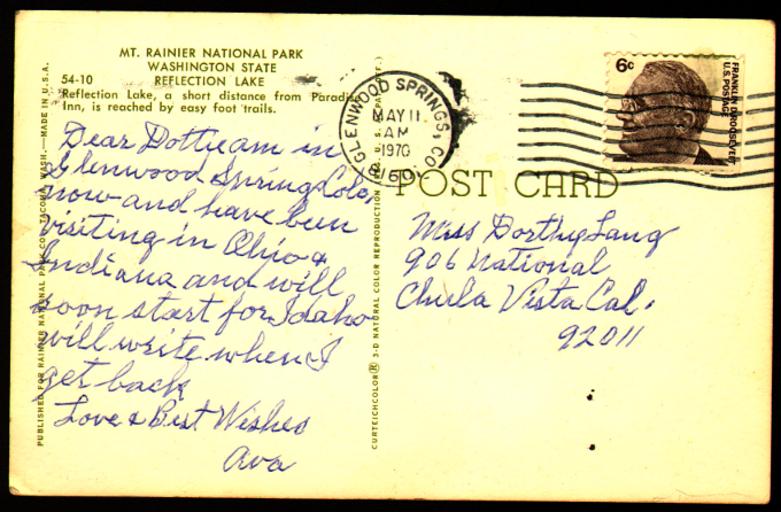 MT. RAINIER NATIONAL PARK
WASHINGTON STATE
54-10 REFLECTION LAKE
Reflection Lake, a short distance from Paradise
Inn, is reached by easy foot trails.
Dear Dotty am in
Glenwood Springs Colo,
now and have been
visiting in Ohio &
Indiana and will
soon start for Idaho
will write when I
get back
Love & Best Wishes
Ava
PUBLISHED FOR RAINIER NATIONAL PARK CO., TACOMA, WASH.—MADE IN U.S.A.
CURTEICHCOLOR® 3-D NATURAL COLOR REPRODUCTION
GLENWOOD SPRINGS, CO.
MAY 11
AM
1970
81601
6c
FRANKLIN D. ROOSEVELT
U.S. POSTAGE
POST CARD
Miss Dorthy Lang
906 National
Chula Vista Cal.
92011